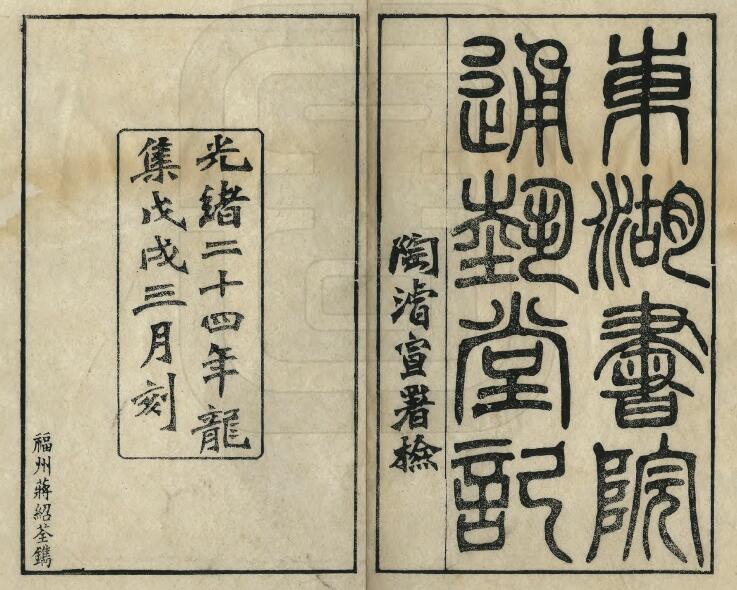 東湖書院
通藝堂記
陶濬宣署檢
光緒二十四年龍
集戊戌三月刻
福州蔣紹荃鐫